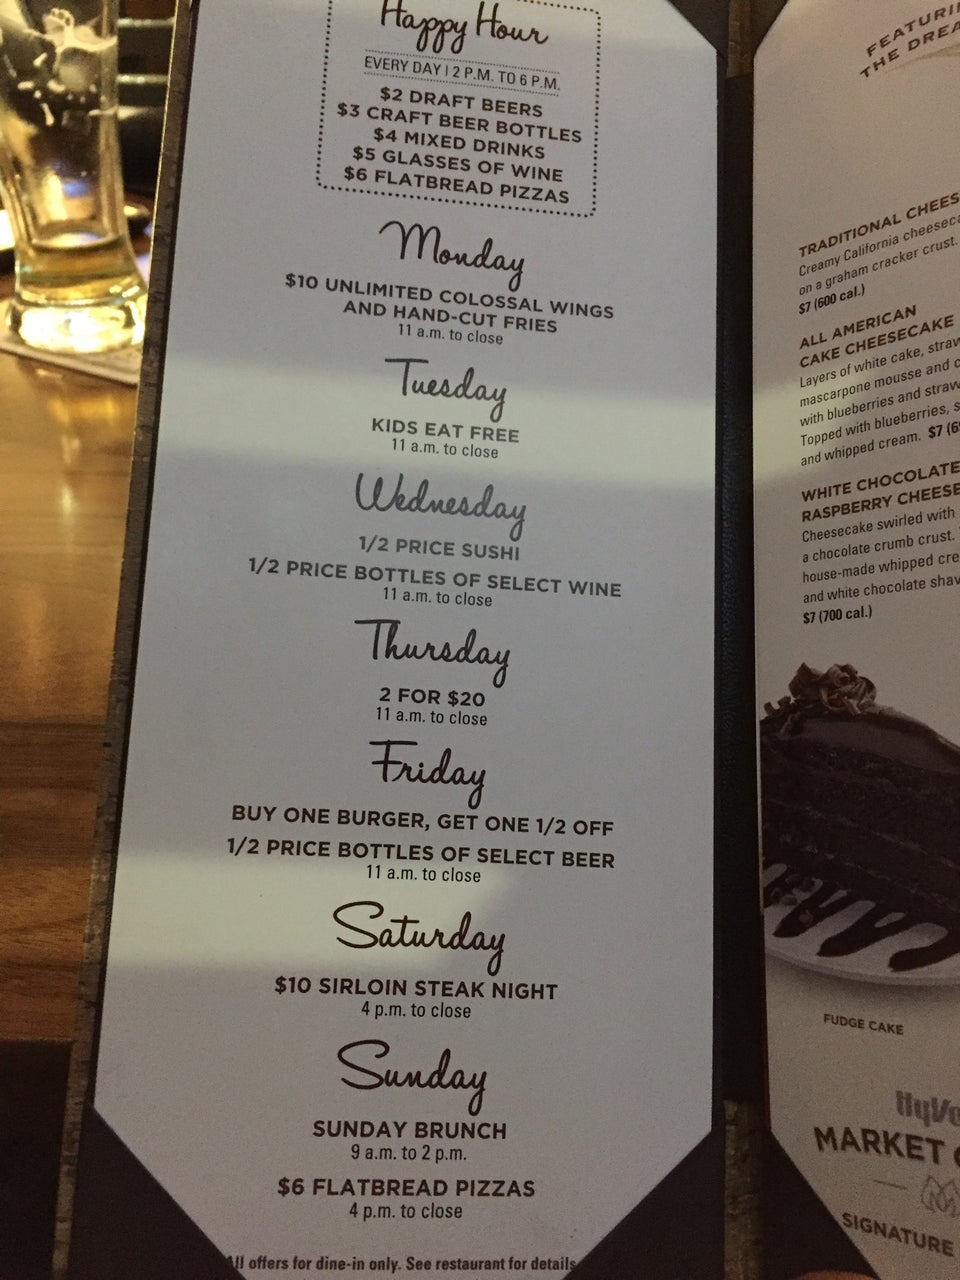 Happy Hour
EVERY DAY | 2 P.M. TO 6 P.M.
$2 DRAFT BEERS
$3 CRAFT BEER BOTTLES
$4 MIXED DRINKS
$5 GLASSES OF WINE
$6 FLATBREAD PIZZAS
Monday
$10 UNLIMITED COLOSSAL WINGS
AND HAND-CUT FRIES
11 a.m. to close
Tuesday
KIDS EAT FREE
11 a.m. to close
Wednesday
1/2 PRICE SUSHI
1/2 PRICE BOTTLES OF SELECT WINE
11 a.m. to close
Thursday
2 FOR $20
11 a.m. to close
Friday
BUY ONE BURGER, GET ONE 1/2 OFF
1/2 PRICE BOTTLES OF SELECT BEER
11 a.m. to close
Saturday
$10 SIRLOIN STEAK NIGHT
4 p.m. to close
Sunday
SUNDAY BRUNCH
9 a.m. to 2 p.m.
$6 FLATBREAD PIZZAS
4 p.m. to close
All offers for dine-in only. See restaurant for details
THE
TRADITIONAL
Creamy California
on a graham cracker crust.
$7 (600 cal.)
ALL AMERICAN
CAKE CHEESECAKE
Layers of white cake,
mascarpone mousse and
with blueberries and
Topped with blueberries,
and whipped cream. $7
WHITE CHOCOLATE
RASPBERRY
Cheesecake swirled with
a chocolate crumb crust.
house-made whipped
and white chocolate
$7 (700 cal.)
FUDGE CAKE
MARKET
SIGNATURE